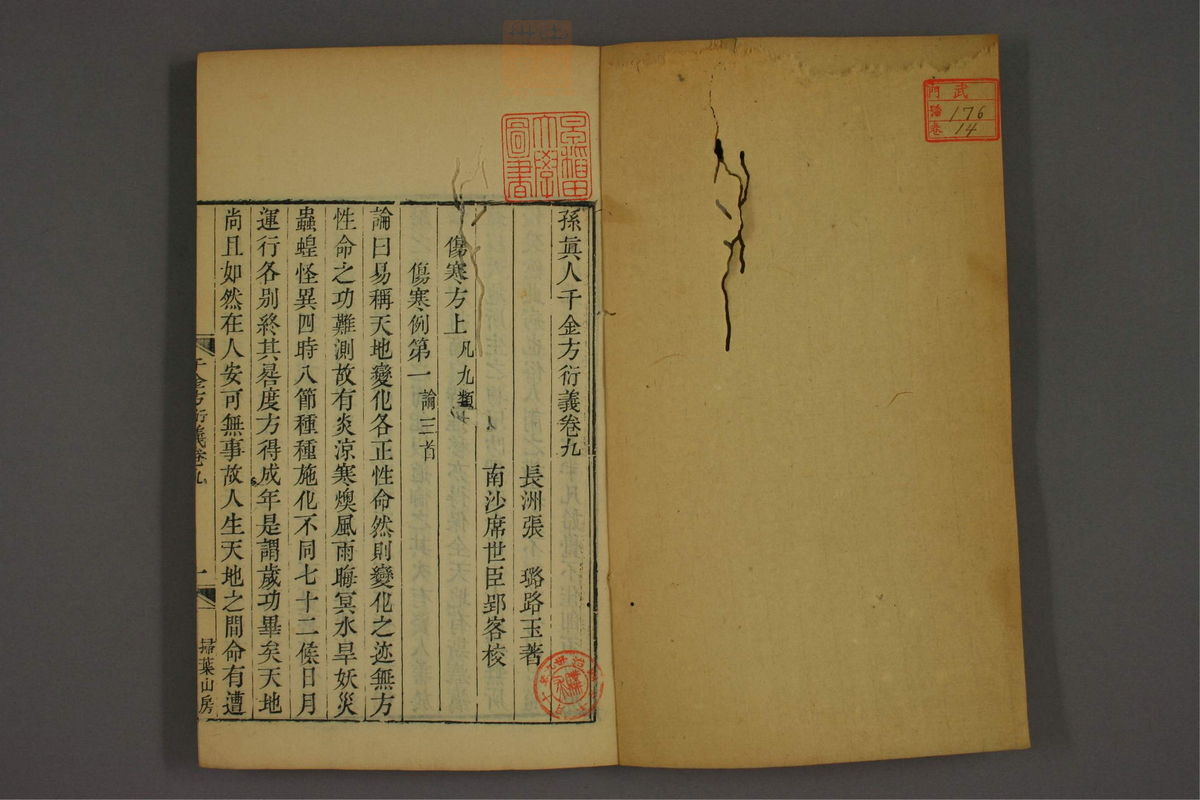 武
門
176
卷
14
早稲田
大學
圖書
孫眞人千金方衍義卷九
長洲張 璐路玉著
南沙席世臣郢客校
傷寒方上 凡九類
傷寒例第一 論三首
論曰易稱天地變化各正性命然則變化之迹無方
性命之功難測故有炎涼寒燠風雨晦冥水旱妖災
蟲蝗怪異四時八節種種施化不同七十二候日月
運行各别終其晷度方得成年是謂歲功畢矣天地
尚且如然在人安可無事故人生天地之間命有遭
千金方衍義卷九
一
掃葉山房